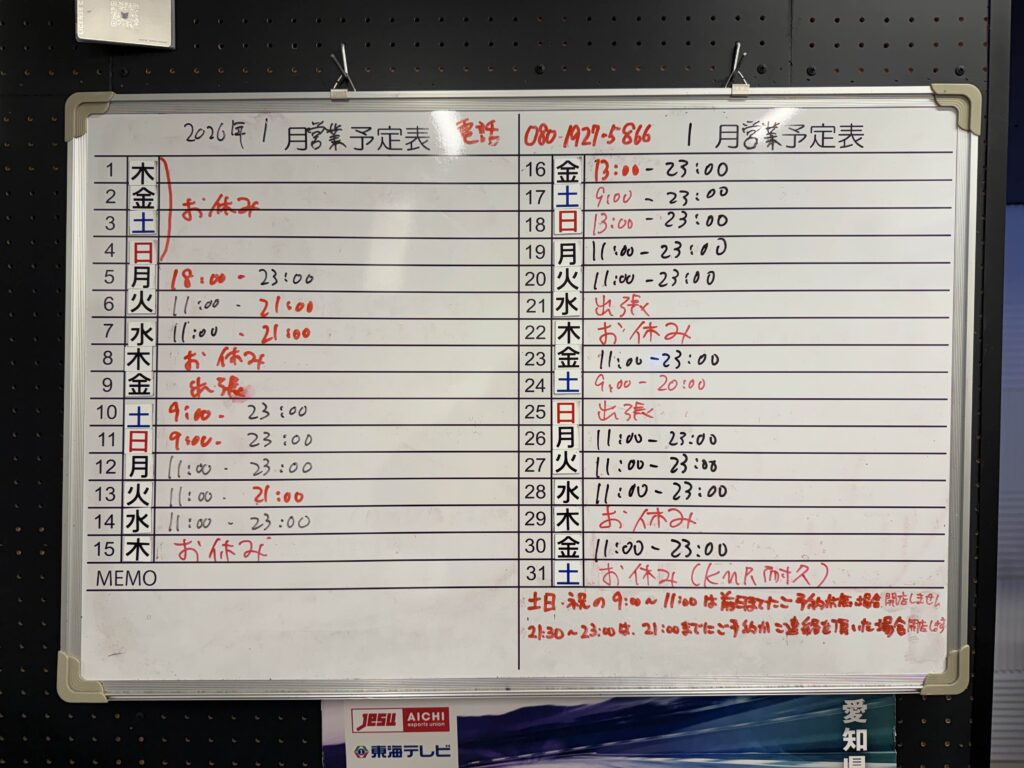 2026年 1 月営業予定表 電話
1 木
2 金 お休み
3 土
4 日
5 月 18:00 - 23:00
6 火 11:00 - 21:00
7 水 11:00 - 21:00
8 木 お休み
9 金 出張
10 土 9:00 - 23:00
11 日 9:00 - 23:00
12 月 11:00 - 23:00
13 火 11:00 - 21:00
14 水 11:00 - 23:00
15 木 お休み
MEMO
080-1927-5866 1 月営業予定表
16 金 13:00 - 23:00
17 土 9:00 - 23:00
18 日 13:00 - 23:00
19 月 11:00 - 23:00
20 火 11:00 - 23:00
21 水 出張
22 木 お休み
23 金 11:00 - 23:00
24 土 9:00 - 20:00
25 日 出張
26 月 11:00 - 23:00
27 火 11:00 - 23:00
28 水 11:00 - 23:00
29 木 お休み
30 金 11:00 - 23:00
31 土 お休み (K耐久)
土日・祝の 9:00～11:00は前日までにご予約が無い場合 開店しません
21:30～23:00は、21:00までにご予約かご連絡を頂いた場合 開店します
JeSU AICHI
esports union
東海テレビ
愛知県